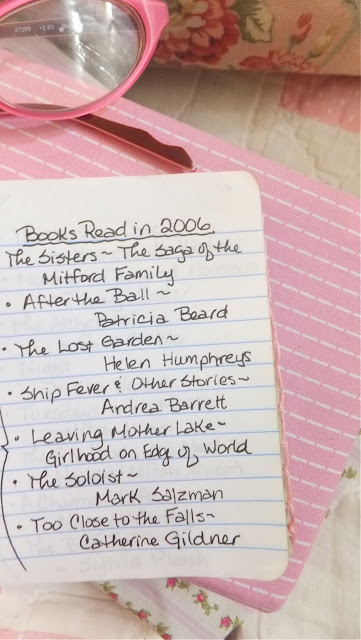 Books Read in 2006
The Sisters ~ The Saga of the
Mitford Family
• After the Ball ~
Patricia Beard
• The Lost Garden ~
Helen Humphreys
• Ship Fever & Other Stories ~
Andrea Barrett
• Leaving Mother Lake ~
Girlhood on Edge of World
• The Soloist ~
Mark Salzman
• Too Close to the Falls ~
Catherine Gildner